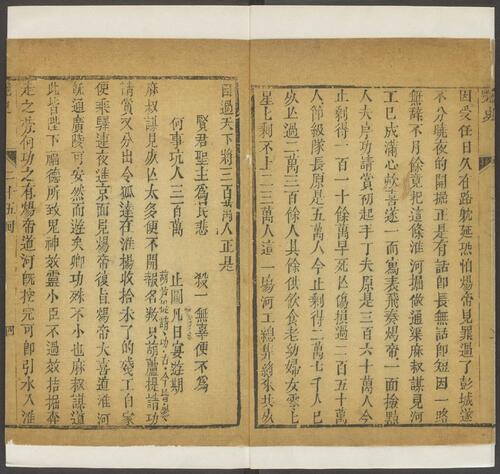 因受任日久有路躭延恐怕煬帝見罪過了彭城遂
不分曉夜的開掘正是有話即長無話即短因一路
無辞不月餘竟把這條淮河掘做通渠麻叔謀見河
工已成滿心歡喜遂一面寫表飛奏煬帝一面撿點
人夫序功請賞初起手丁夫原是三百六十萬人今
止剩得一百一十餘萬早死亾傷損過二百五十萬
人節級隊長原是五萬人今止剩得二萬七千人巳
死亾過二萬三百餘人其餘供飲食老幼婦女雲七
星七剩不上二三萬人這一塲河工總非將來共死
國過天下將三百萬人正是
賢君聖主為民悲 殺一無辜便不為
何事坑人三百萬 止圖凡日宴遊期
麻叔謀見死亾太多便不開報名數只葫蘆提請功
請賞又分出令狐達在淮楊收拾未了的殘工自家
便乘驛連夜進京面見煬帝復旨煬帝大喜道淮河
旣通廣陵可安然而遊矣卿功殊不小也麻叔謀道
此皆陛下福德所致鬼神效靈小臣不過效拮据奔
走之劳何功之有煬帝道河旣挖完可即引水入淮
二十五回
四